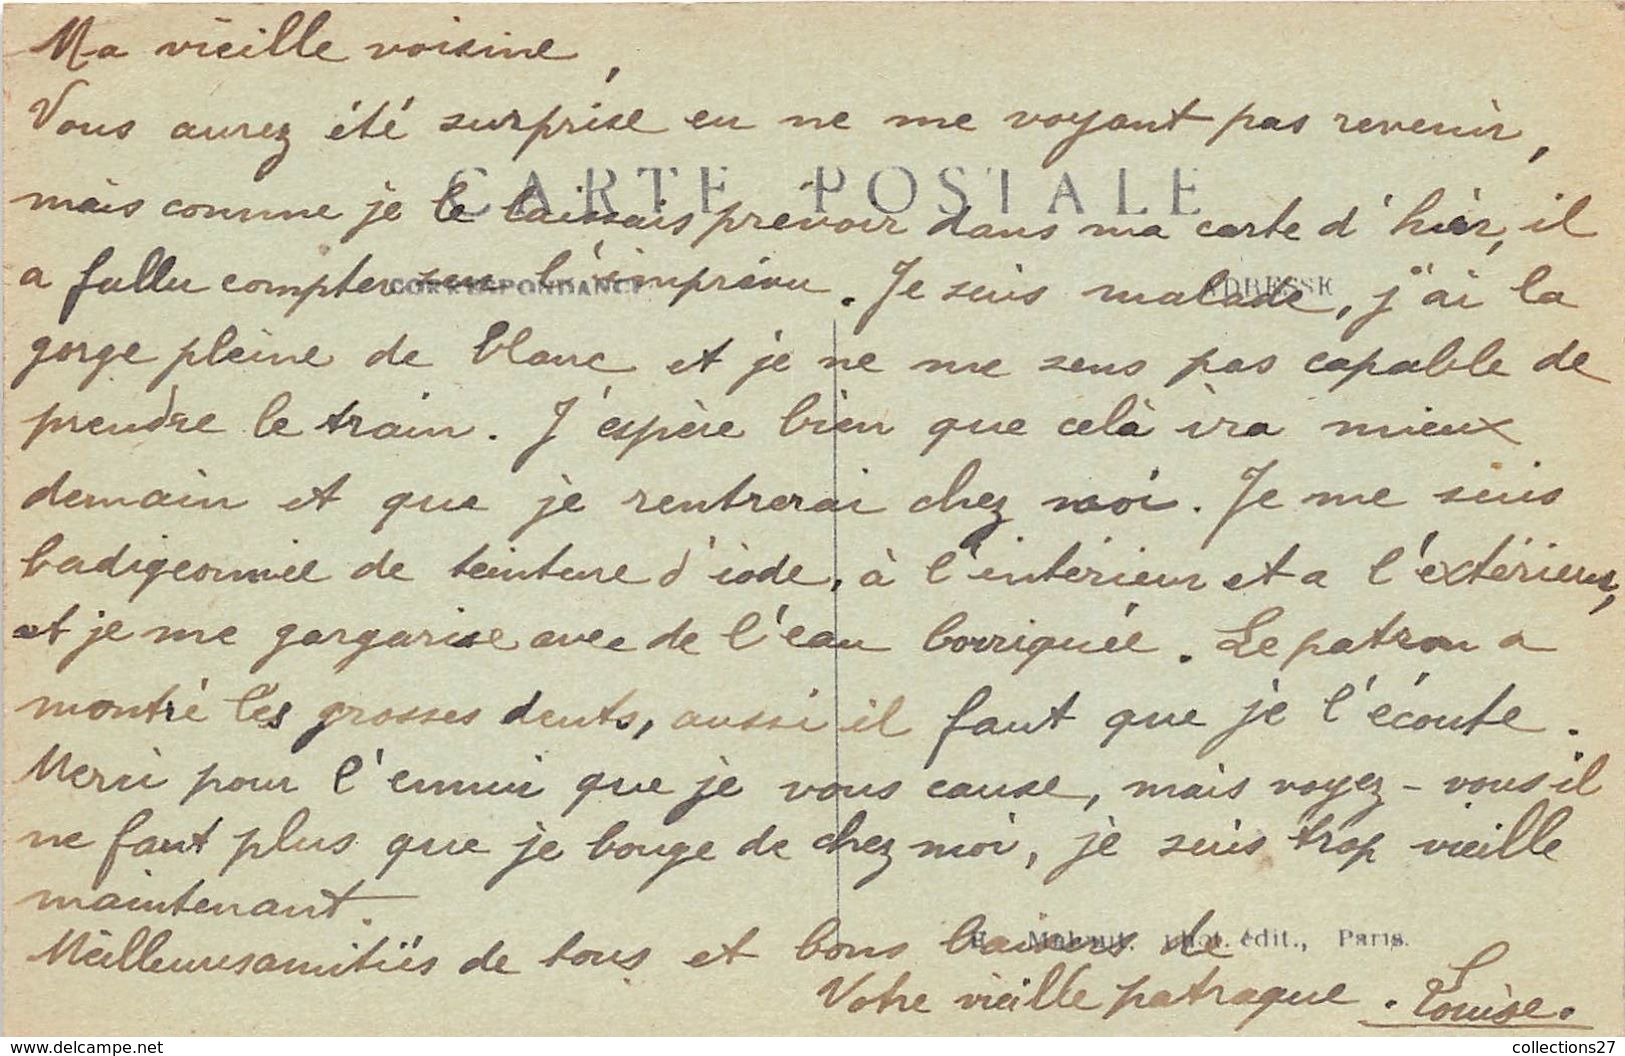 Ma vieille voisine,
Vous aurez été surprise en ne me voyant pas revenir,
CARTE POSTALE
mais comme je le laissais prévoir dans ma carte d'hier, il
CORRESPONDANCE
ADRESSE
a fallu compter sur l'imprévu. Je suis malade, j'ai la
gorge pleine de blanc et je ne me sens pas capable de
prendre le train. J'espère bien que celà ira mieux
demain et que je rentrerai chez moi. Je me suis
badigeonnée de teinture d'iode, à l'intérieur et a l'extérieur,
et je me gargarise avec de l'eau borriquée. Le patron a
montré les grosses dents, aussi il faut que je l'écoute.
Merci pour l'ennui que je vous cause, mais voyez-vous il
ne faut plus que je bouge de chez moi, je suis trop vieille
maintenant.
Meilleures amitiés de tous et bons baisers de
phot. édit., Paris.
Votre vieille patraque. Louise.
https://www.delcampe.net
collections27